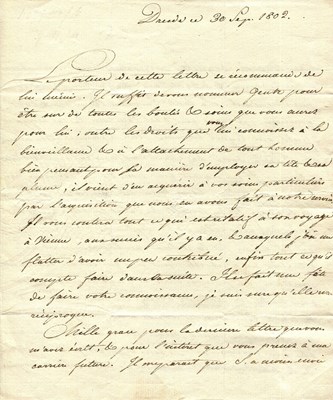 Dresde ce 30 Sep. 1802.
Le porteur de cette lettre se recommande de
lui même. Il suffit de vous nommer Gentz pour
être sur de toutes les bontés & soins que vous aurez
pour lui; outre les droits que vous lui connoissez à la
bienveillance & à l'attachement de tout homme
bien pensant pour la manière d'employer sa tête & sa
plume, il vient d'en acquérir à vos soins particuliers
par l'acquisition que nous en avons fait à notre
Il vous contera tout ce qui est relatif à son voyage
à Vienne, aux succès qu'il y a eu, & auxquels j'ose me
flatter d'avoir un peu contribué, enfin tout ce qu'il
compte faire dans la suite. Il se fait une fête
de faire votre connoissance, je suis sur qu'elle sera
réciproque.
Mille graces pour la dernière lettre que vous
m'avez écrit, & pour l'intérêt que vous prenez à ma
carrière future. Il me paroit que